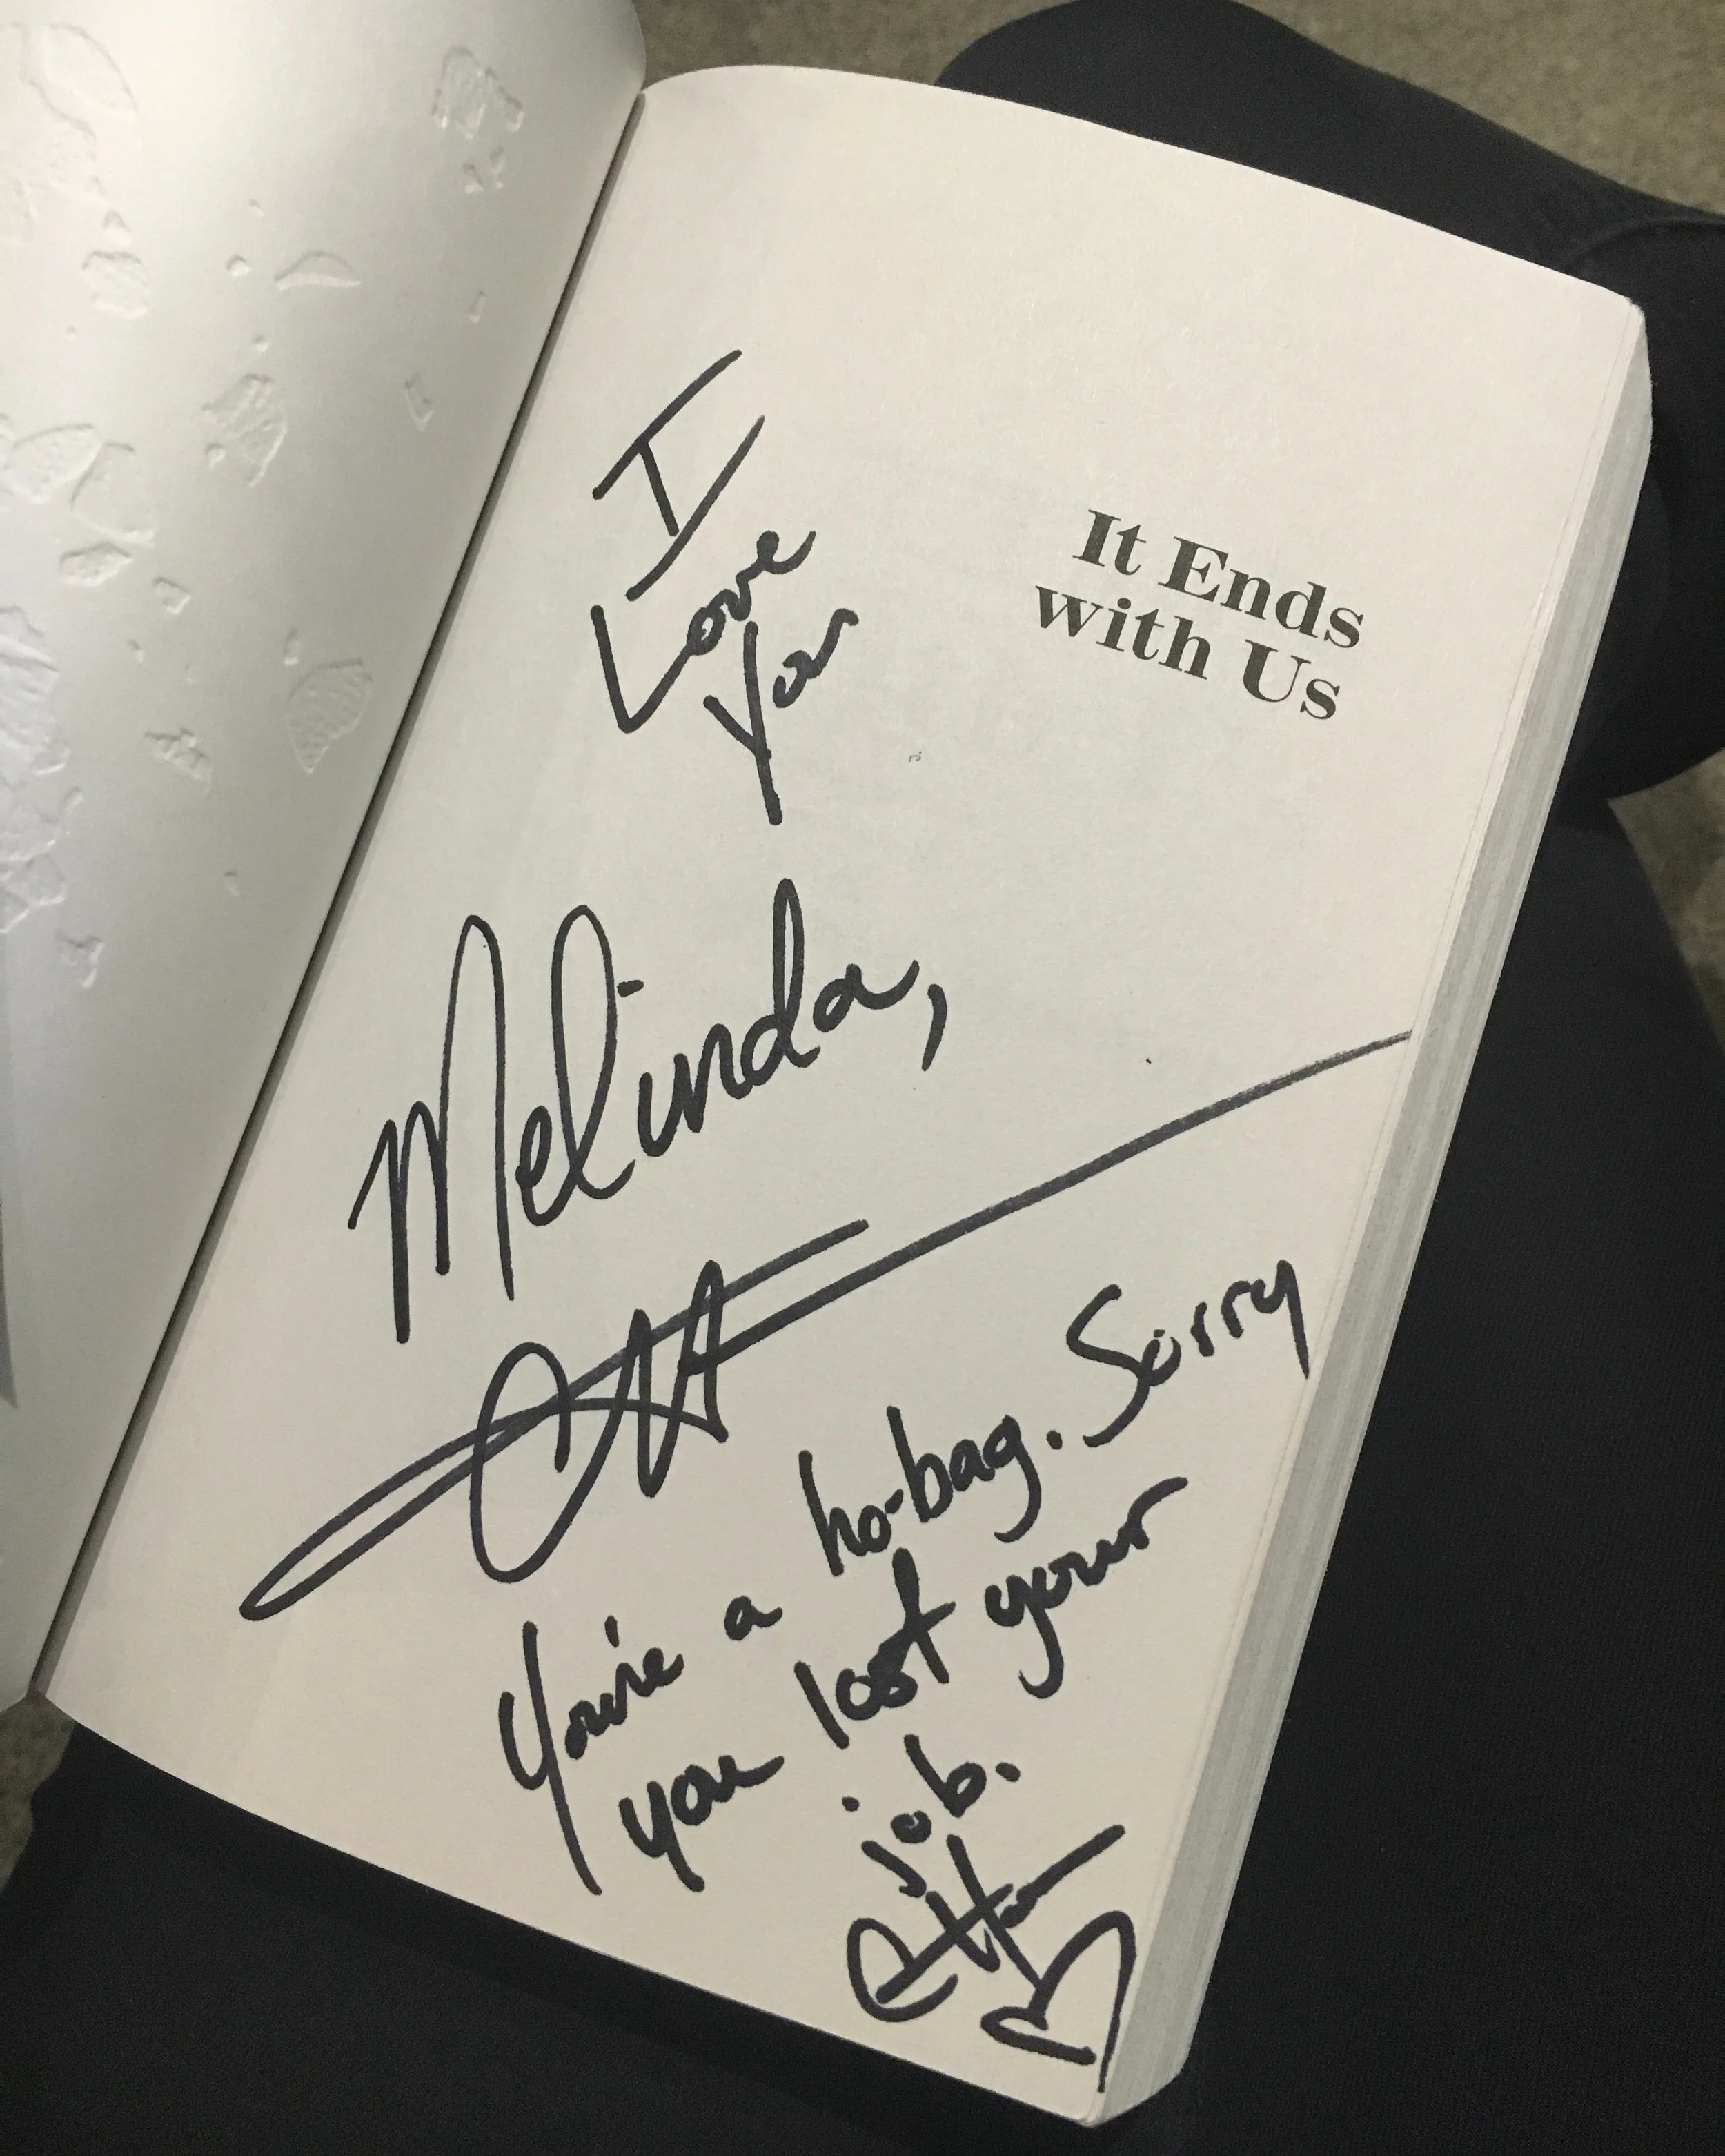 It Ends
with Us
I
Love
You
Melinda,
You're a ho-bag. Sorry
you lost your
job.